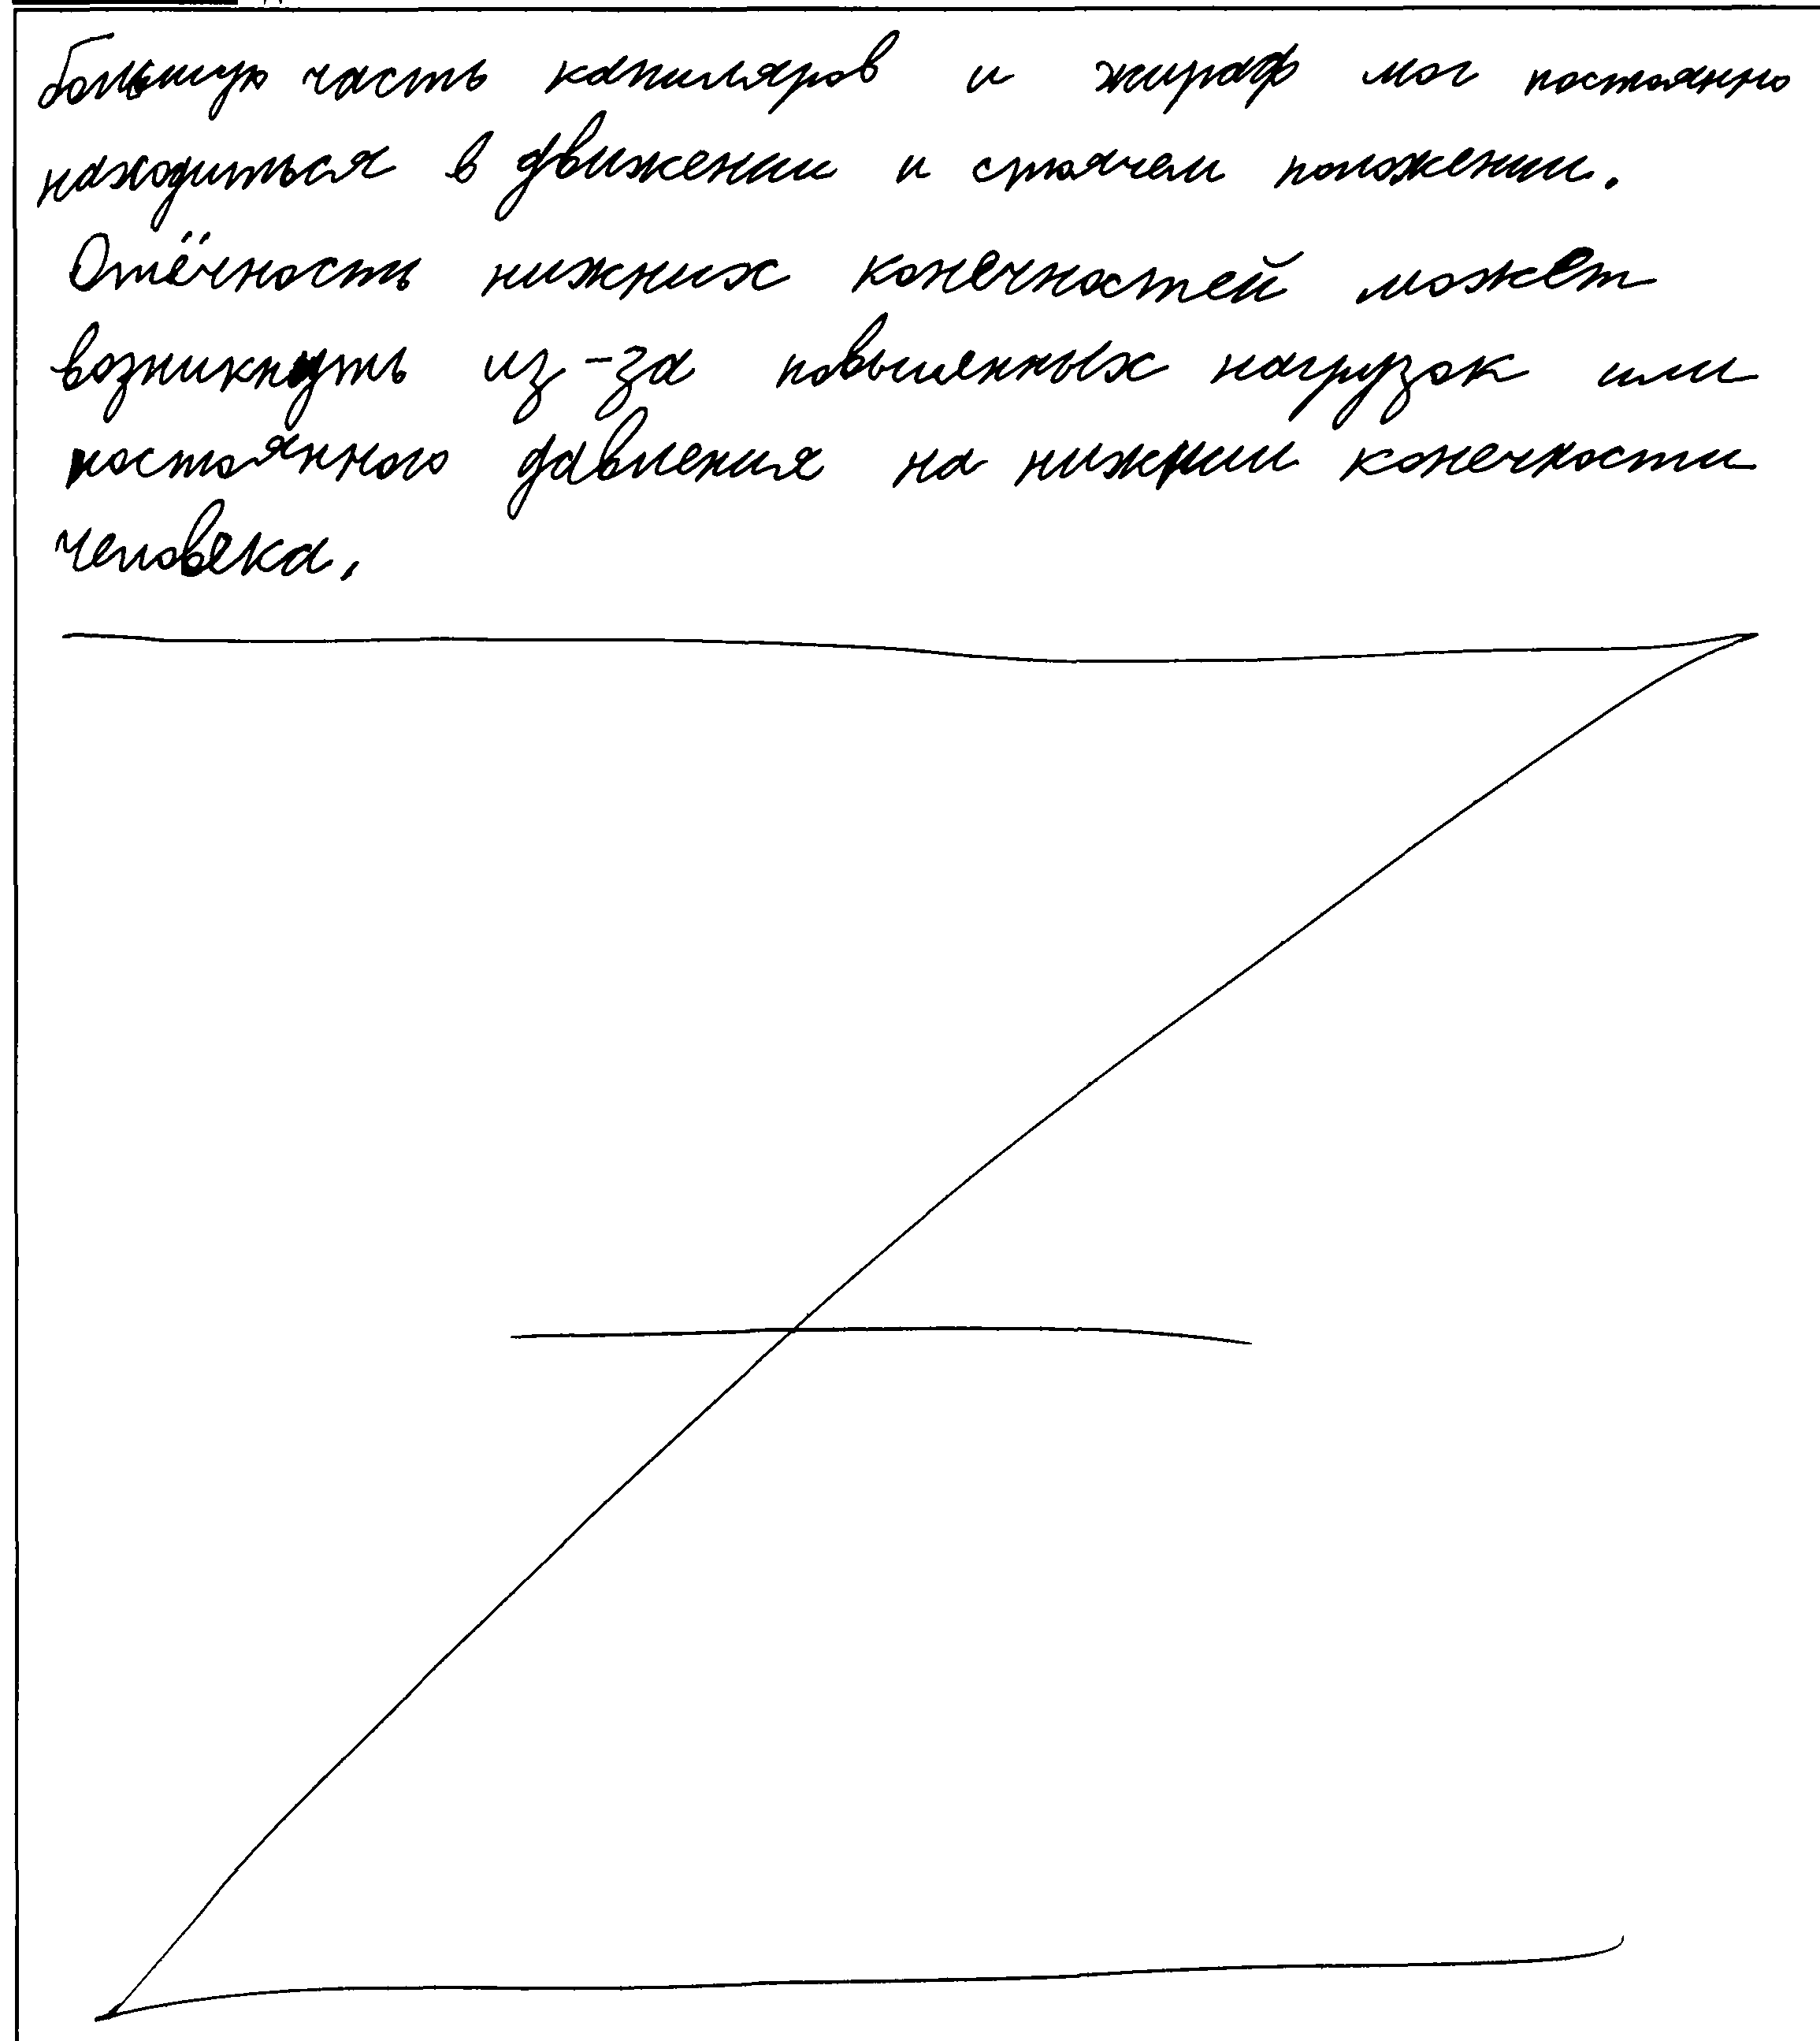 большую часть капиляров и жираф мог постоянно
находиться в движении и стоячем положении.
Отёчность нижних конечностей может
возникнуть из-за повышенных нагрузок или
постоянного давления на нижнии конечности
человека.